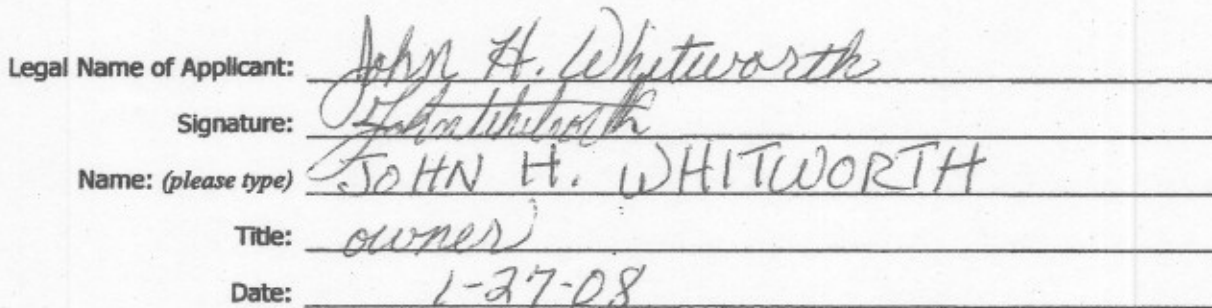 Legal Name of Applicant: John H. Whitworth
Signature: John Whitworth
Name: (please type) JOHN H. WHITWORTH
Title: owner
Date: 1-27-08